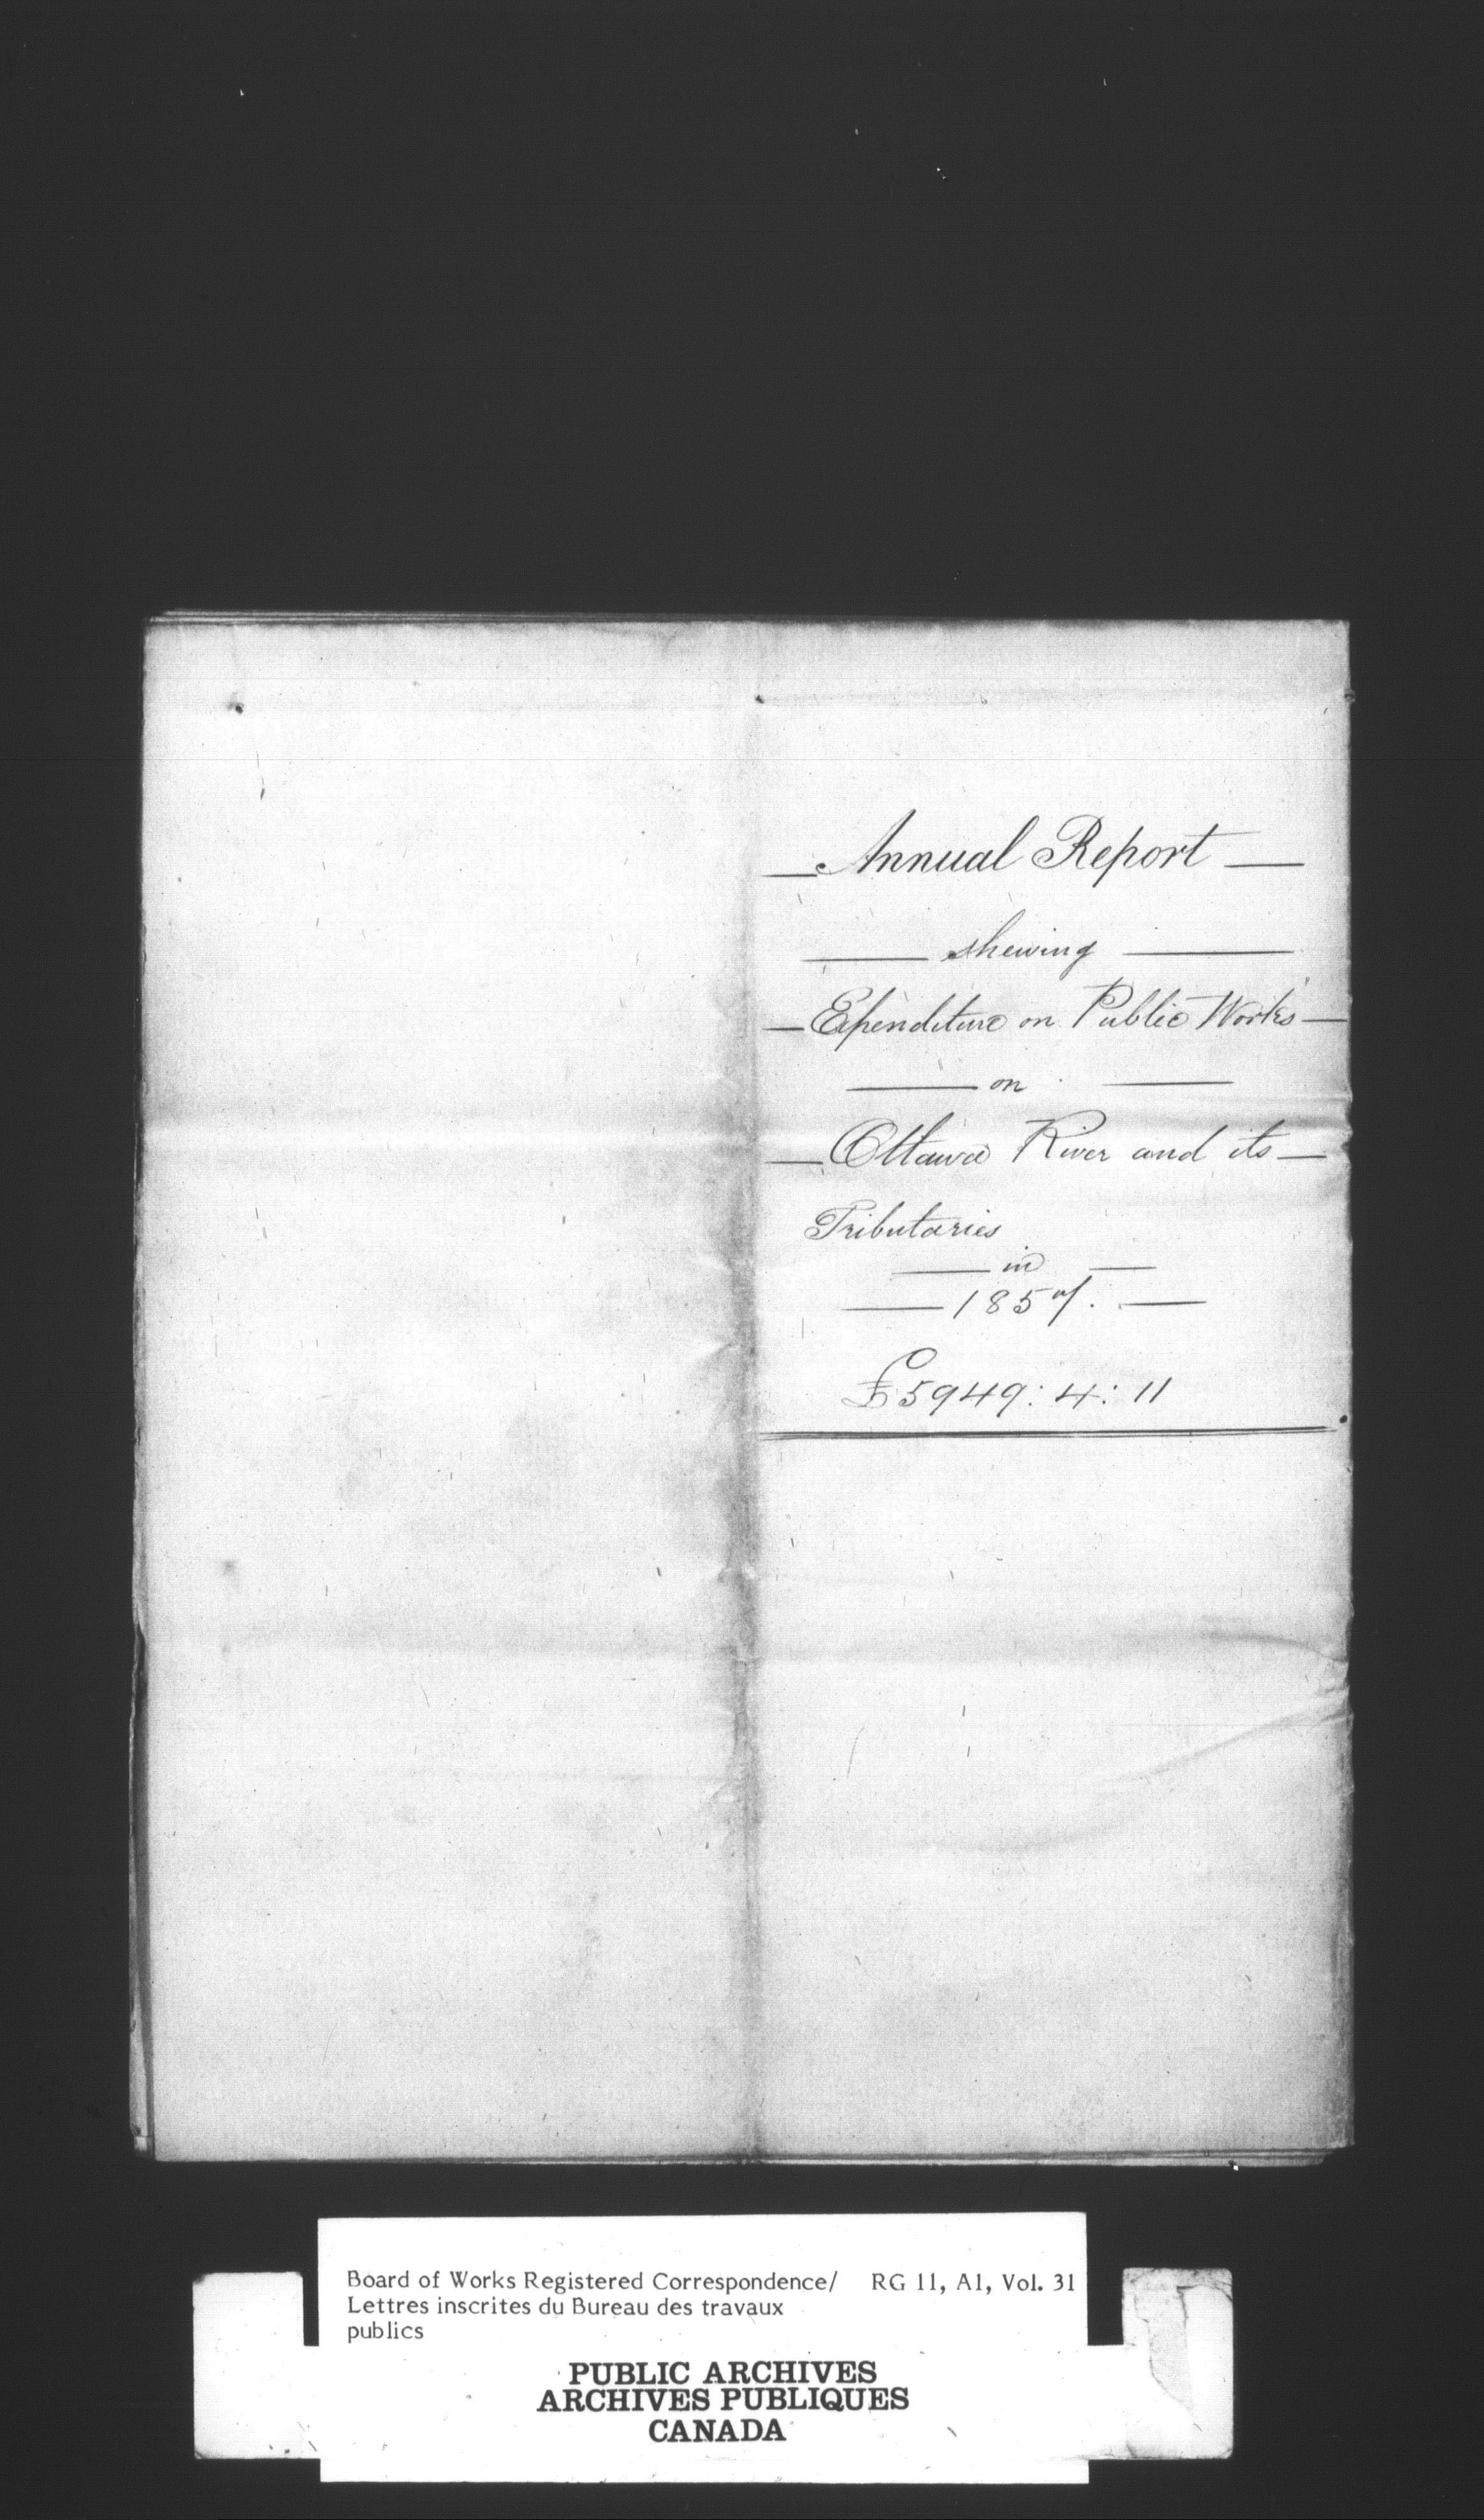 Annual Report
shewing
Expenditure on Public Works
on
Ottawa River and its
Tributaries
in
1857.
£5949:4:11
Board of Works Registered Correspondence/ RG 11, A1, Vol. 31
Lettres inscrites du Bureau des travaux
publics
PUBLIC ARCHIVES
ARCHIVES PUBLIQUES
CANADA